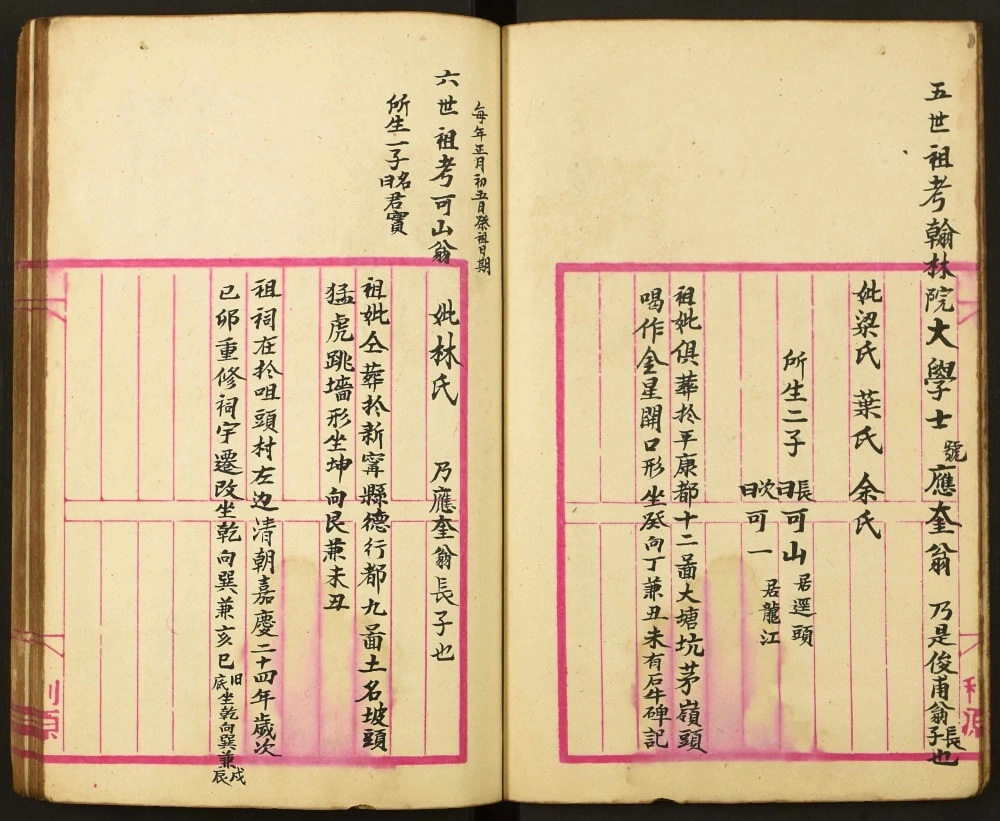 五世祖考翰林院大學士號應奎翁 乃是俊甫翁長子也
妣梁氏 葉氏 余氏
所生二子 長曰可山 居逕頭
次曰可一 居龍江
祖妣俱葬於平康都十二啚大塘坑茅嶺頭
喝作金星開口形坐癸向丁兼丑未有石牛碑記
利源
每年正月初五日祭祖日期
六世祖考可山翁 妣林氏 乃應奎翁長子也
所生一子名曰君寶
祖妣仝葬於新寧縣德行都九啚土名坡頭
猛虎跳墻形坐坤向艮兼未丑
祖祠在於咀頭村左边清朝嘉慶二十四年歲次
已卯重修祠宇遷改坐乾向巽兼亥巳旧底坐乾向巽兼戌辰
利源